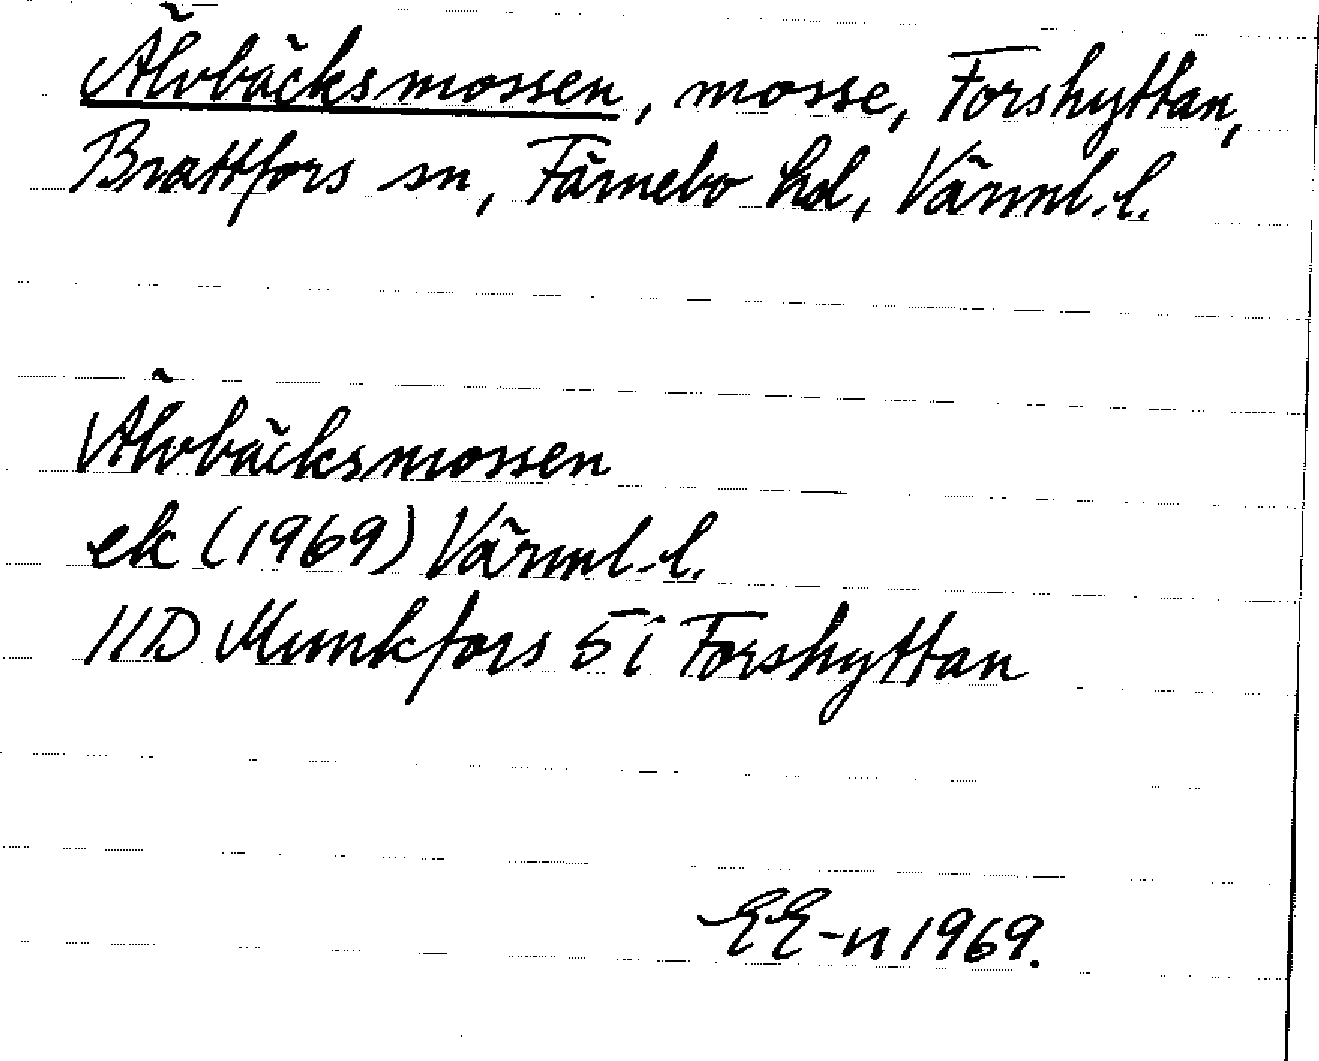 Älvbäcksmossen, mosse, Forshyttan,
Brattfors sn, Färnebo hd, Värml.l.
Älvbäcksmossen
ek (1969) Värml.l.
11D Munkfors 5i Forshyttan
EE-n 1969.